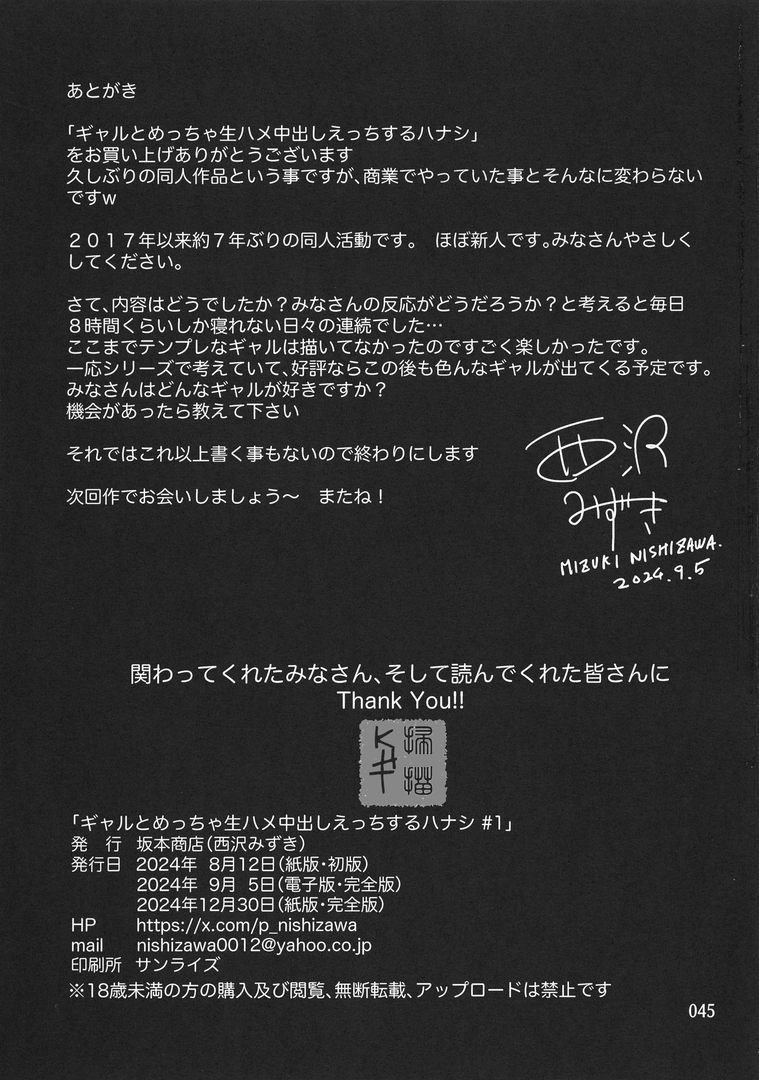 あとがき
「ギャルとめっちゃ生ハメ中出しえっちするハナシ」
をお買い上げありがとうございます
久しぶりの同人作品という事ですが、商業でやっていた事とそんなに変わらない
ですw
２０１７年以来約７年ぶりの同人活動です。　ほぼ新人です。みなさんやさしく
してください。
さて、内容はどうでしたか？みなさんの反応がどうだろうか？と考えると毎日
８時間くらいしか寝れない日々の連続でした…
ここまでテンプレなギャルは描いてなかったのですごく楽しかったです。
一応シリーズで考えていて、好評ならこの後も色んなギャルが出てくる予定です。
みなさんはどんなギャルが好きですか？
機会があったら教えて下さい
それではこれ以上書く事もないので終わりにします
次回作でお会いしましょう〜　またね！
西沢
みずき
MIZUKI NISHIZAWA.
2024.9.5
関わってくれたみなさん、そして読んでくれた皆さんに
Thank You!!
「ギャルとめっちゃ生ハメ中出しえっちするハナシ #1」
発　行　坂本商店（西沢みずき）
発行日　2024年 8月12日（紙版・初版）
2024年 9月 5日（電子版・完全版）
2024年12月30日（紙版・完全版）
HP　https://x.com/p_nishizawa
mail　nishizawa0012@yahoo.co.jp
印刷所　サンライズ
※18歳未満の方の購入及び閲覧、無断転載、アップロードは禁止です
045